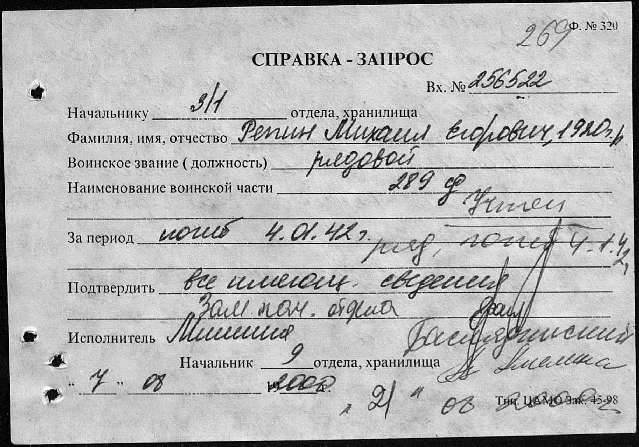 269 Ф. № 320
СПРАВКА - ЗАПРОС
Вх. № 256522
Начальнику 3/1 отдела, хранилища
Фамилия, имя, отчество Репин Михаил Егорович, 1920г.р
Воинское звание ( должность) рядовой
Наименование воинской части 289
За период погиб 4.01.42г. ряд, погиб 4.1.42
Подтвердить все имеющ. сведения
Зам нач. отдела
Исполнитель Мишина
Начальник 9 отдела, хранилища
" 7 " 08 2000г.
" 21 " 08 2000г
Тип. ЦАМО Зак. 45-98